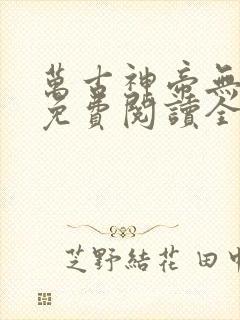 萬古神帝無
免費閱讀全
芝野結花 田中